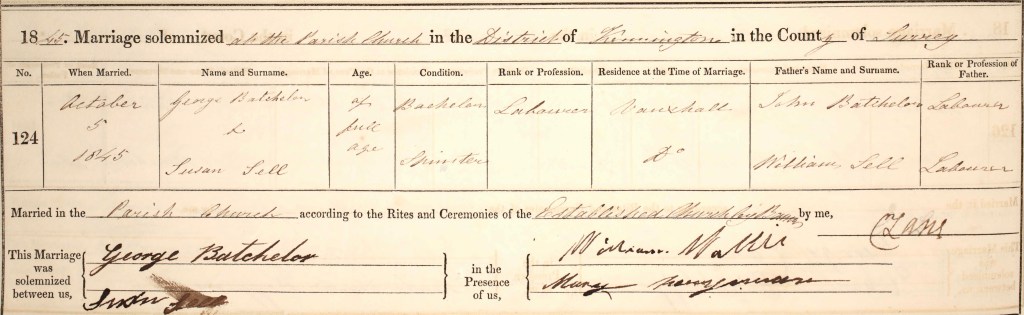 1845. Marriage solemnized at the Parish Church in the District of Kennington in the County of Surrey
No. When Married. Name and Surname. Age. Condition. Rank or Profession. Residence at the Time of Marriage. Father's Name and Surname. Rank or Profession of Father.
124 October 5 1845 George Batchelor & Susan Sell of full age Bachelor Spinster Labourer Vauxhall Do John Batchelor William Sell Labourer Labourer
Married in the Parish Church according to the Rites and Ceremonies of the Established Church by me,
C Lane
This Marriage was solemnized between us, George Batchelor in the Presence of us, William Wallis
Susan Sell Mary